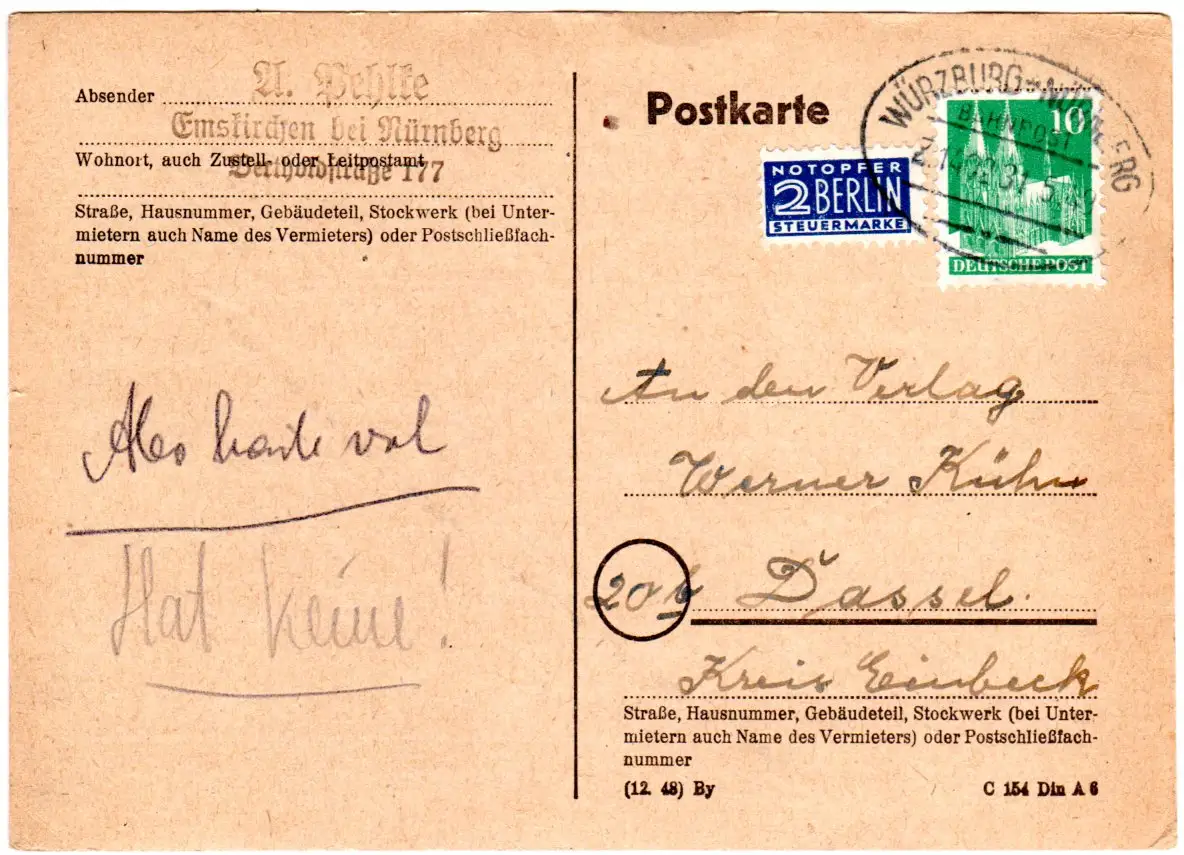 Absender A. Pehlke
Emskirchen bei Nürnberg
Wohnort, auch Zustell- oder Leitpostamt
Bertholdstraße 177
Straße, Hausnummer, Gebäudeteil, Stockwerk (bei Unter-
mietern auch Name des Vermieters) oder Postschließfach-
nummer
Hat keine!
Postkarte
NOTOPFER
2 BERLIN
STEUERMARKE
10
DEUTSCHE POST
WÜRZBURG - NÜRNBERG
BAHNPOST
31 5
An den Verlag
Werner Kühn
20b Dassel.
Kreis Einbeck
Straße, Hausnummer, Gebäudeteil, Stockwerk (bei Unter-
mietern auch Name des Vermieters) oder Postschließfach-
nummer
(12. 48) By C 154 Din A 6